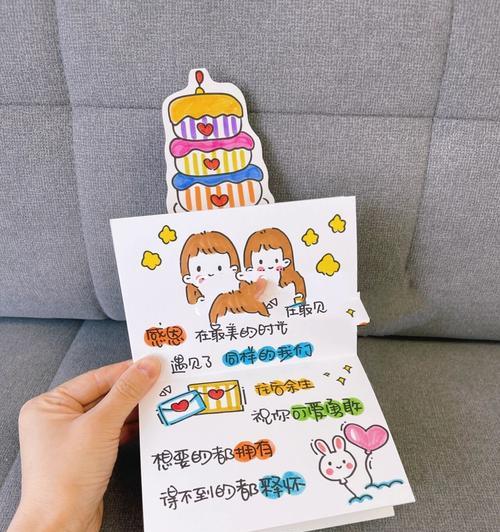 在最见
感恩 在最美的时光
遇见了 同样的我们
往后余生
祝你可爱勇敢
想要的都拥有
得不到的都释怀